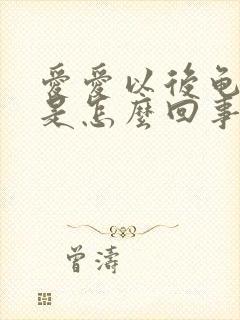 愛愛以後龟
是怎麼回事
曾濤